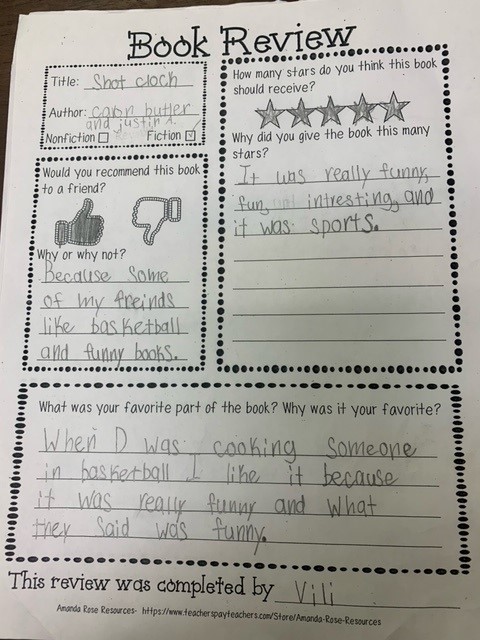 Book Review
Title: Shot cloch
Author: caron butler
and justin
Nonfiction
Fiction
Would you recommend this book
to a friend?
Why or why not?
Because some
of my freinds
like basketball
and funny books.
How many stars do you think this book
should receive?
Why did you give the book this many
stars?
It was really funny,
fun, intresting, and
it was sports.
What was your favorite part of the book? Why was it your favorite?
When D was cooking someone
in basketball I like it because
it was really funny and what
they said was funny.
This review was completed by Vili
Amanda Rose Resources- https://www.teacherspayteachers.com/Store/Amanda-Rose-Resources